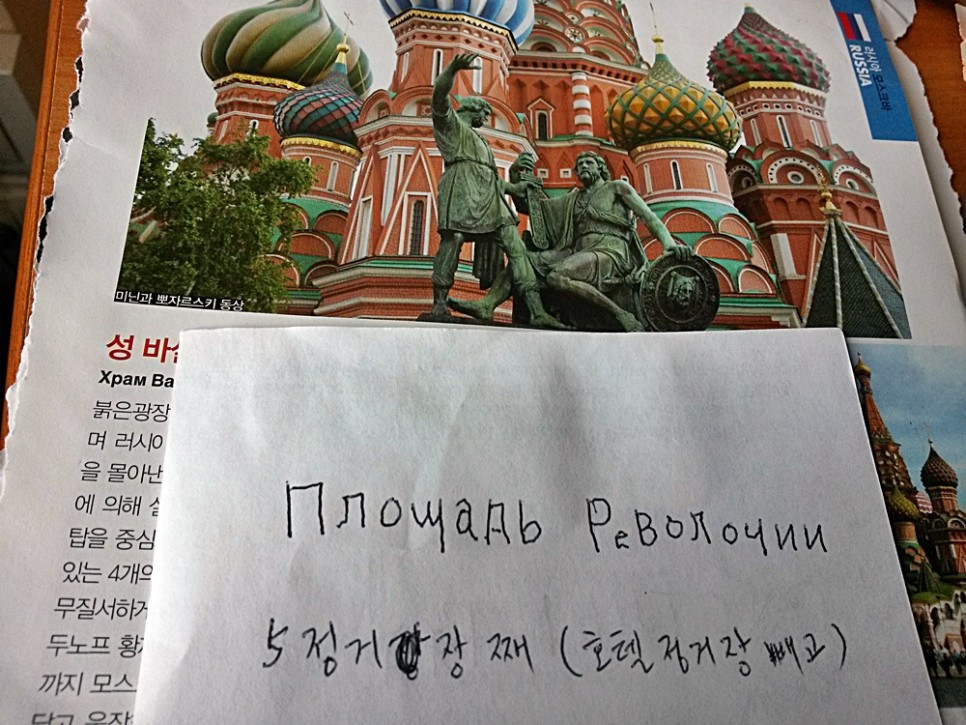 러시아 모스크바
RUSSIA
미닌과 뽀자르스키 동상
성 바실
Храм Ва
붉은광장
며 러시아
을 몰아낸
에 의해
탑을 중심
있는 4개의
무질서하게
두노프 황
까지 모스
Площадь Револочии
5 정거장 째 (호텔 정거장 빼고)